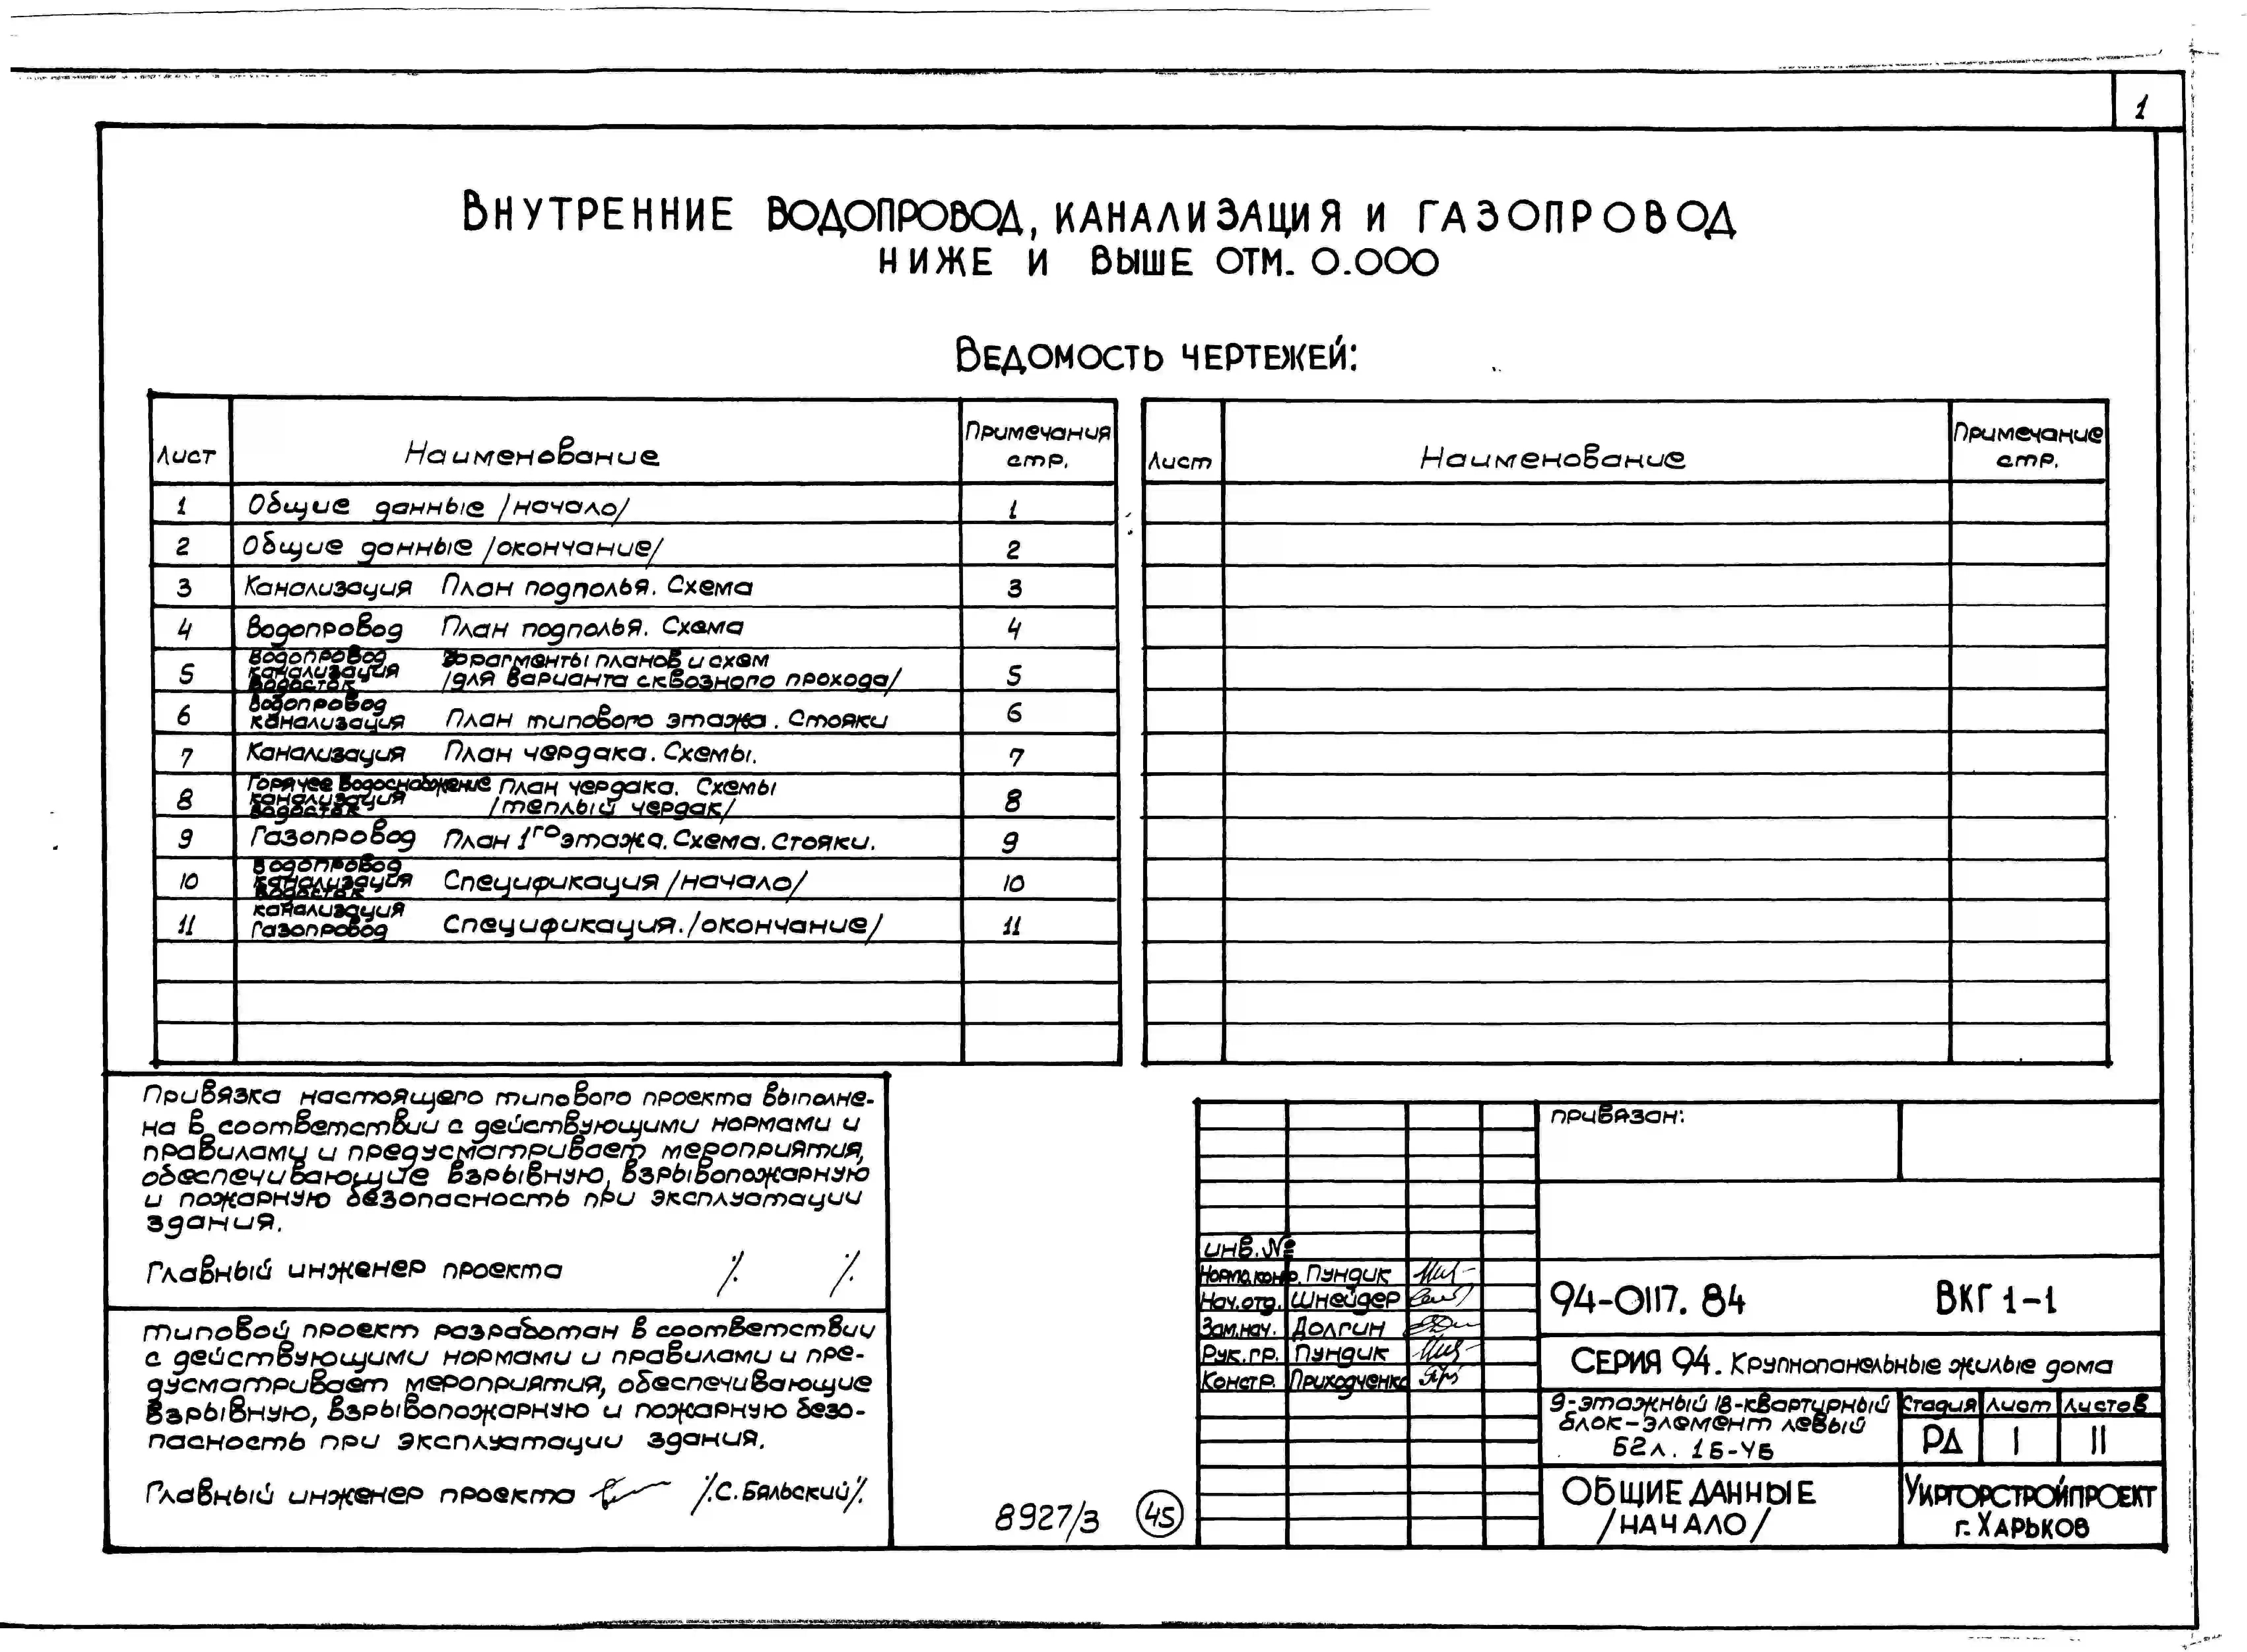 1
Внутренние водопровод, канализация и газопровод
ниже и выше отм. 0.000
Ведомость чертежей:
Лист Наименование Примечания стр.
Лист Наименование Примечание стр.
1 Общие данные /начало/ 1
2 Общие данные /окончание/ 2
3 Канализация План подполья. Схема 3
4 Водопровод План подполья. Схема 4
5 Водопровод канализация водосток Фрагменты планов и схем /для варианта сквозного прохода/ 5
6 Водопровод канализация План типового этажа. Стояки 6
7 Канализация План чердака. Схемы. 7
8 Горячее водоснабжение канализация водосток План чердака. Схемы /теплый чердак/ 8
9 Газопровод План 1го этажа. Схема. Стояки. 9
10 Водопровод канализация водосток Спецификация /начало/ 10
11 канализация Газопровод Спецификация. /окончание/ 11
Привязка настоящего типового проекта выполне-
на в соответствии с действующими нормами и
правилами и предусматривает мероприятия,
обеспечивающие взрывную, взрывопожарную
и пожарную безопасность при эксплуатации
здания.
Главный инженер проекта /. /.
Типовой проект разработан в соответствии
с действующими нормами и правилами и пре-
дусматривает мероприятия, обеспечивающие
взрывную, взрывопожарную и пожарную безо-
пасность при эксплуатации здания.
Главный инженер проекта /.С. Бяльский/.
8927/3 45
привязан:
инв. №
Норма. контр. Пундик
Нач. отд. Шнейдер
Зам. нач. Долгин
Рук. гр. Пундик
Констр. Приходченко
94-0117. 84 ВКГ 1-1
Серия 94. Крупнопанельные жилые дома
9-этажный 18-квартирный
блок-элемент левый
Б2л. 1Б-4Б
Стадия Лист Листов
РД 1 11
Общие данные
/начало/
Укргорстройпроект
г. Харьков